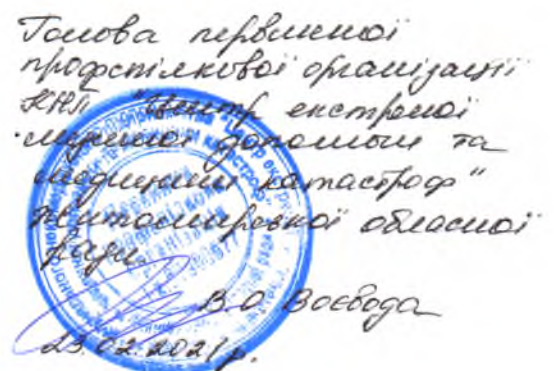 Голова первинної
профспілкової організації
КНП "Центр екстреної
медичної допомоги та
медицини катастроф"
Житомирської обласної
ради
В.О. Воєвода
23.02.2021р.